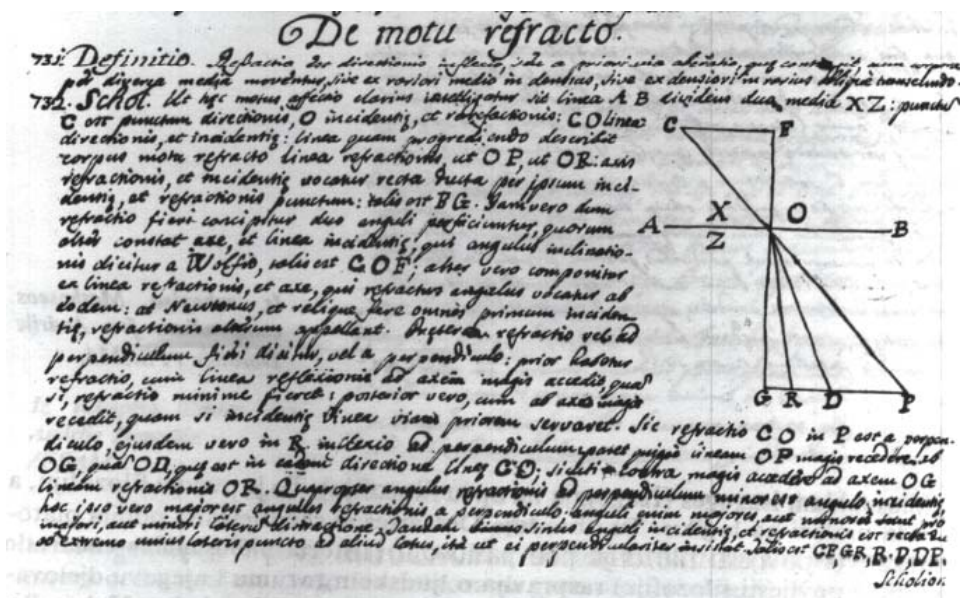 De motu refracto.
731. Definitio. Refractio est directionis inflexio, seu a priori via
per diversa media moventur, sive ex rariori medio in densius, sive ex densiori in rarius
732. Schol. Ut hic motus clarius intelligatur sit linea A B dividens duo media X Z: punctus
C est punctum directionis, O incidentię, et: C O linea
directionis, et incidentię: linea quam progrediendo describit
corpus motu refracto linea refractionis, ut O P, ut O R: axis
refractionis, et incidentię vocatur recta ducta per ipsum inci-
dentię, et refractionis punctum: talis est F G. Jam vero dum
refractio fieri concipitur duo anguli perficiuntur, quorum
alter constat axe, et linea incidentię, qui angulus inclinatio-
nis dicitur a Wolfio, talis est C O F; alter vero componitur
ex linea refractionis, et axe, qui refractus angulus vocatur ab
eodem: at Newtonus, et reliqui fere omnes primum inciden-
tię, refractionis alterum appellant. Pręterea refractio vel ad
perpendiculum fieri dicitur, vel a perpendiculo: prior habetur
refractio, cum linea reflexionis ad axem magis accedit, quam
si, refractio minime fieret: posterior vero, cum ab axe magis
recedit, quam si incidentię linea viam priorem servaret. Sic refractio C O in P est a perpen-
diculo, ejusdem vero in R inflexio ad perpendiculum: patet quippe lineam O P magis recedere ab
O G, quam O D, quę est in directione lineę C O; sicuti contra magis accedere ad axem O G
lineam refractionis O R. Quapropter angulus refractionis ad perpendiculum minor est angulo incidentię,
hoc ipso vero major est angulus refractionis a perpendiculo: anguli enim majores, aut minores sunt pro
majori, aut minori lateris distractione. Tandem sinus anguli incidentię, et refractionis est recta
ab extremo unius lateris puncto ad aliud latus, ita ut ei perpendiculariter insistat. Talis est CF, GR, R D, DP.
Scholion
C F
X O
A B
Z
G R D P